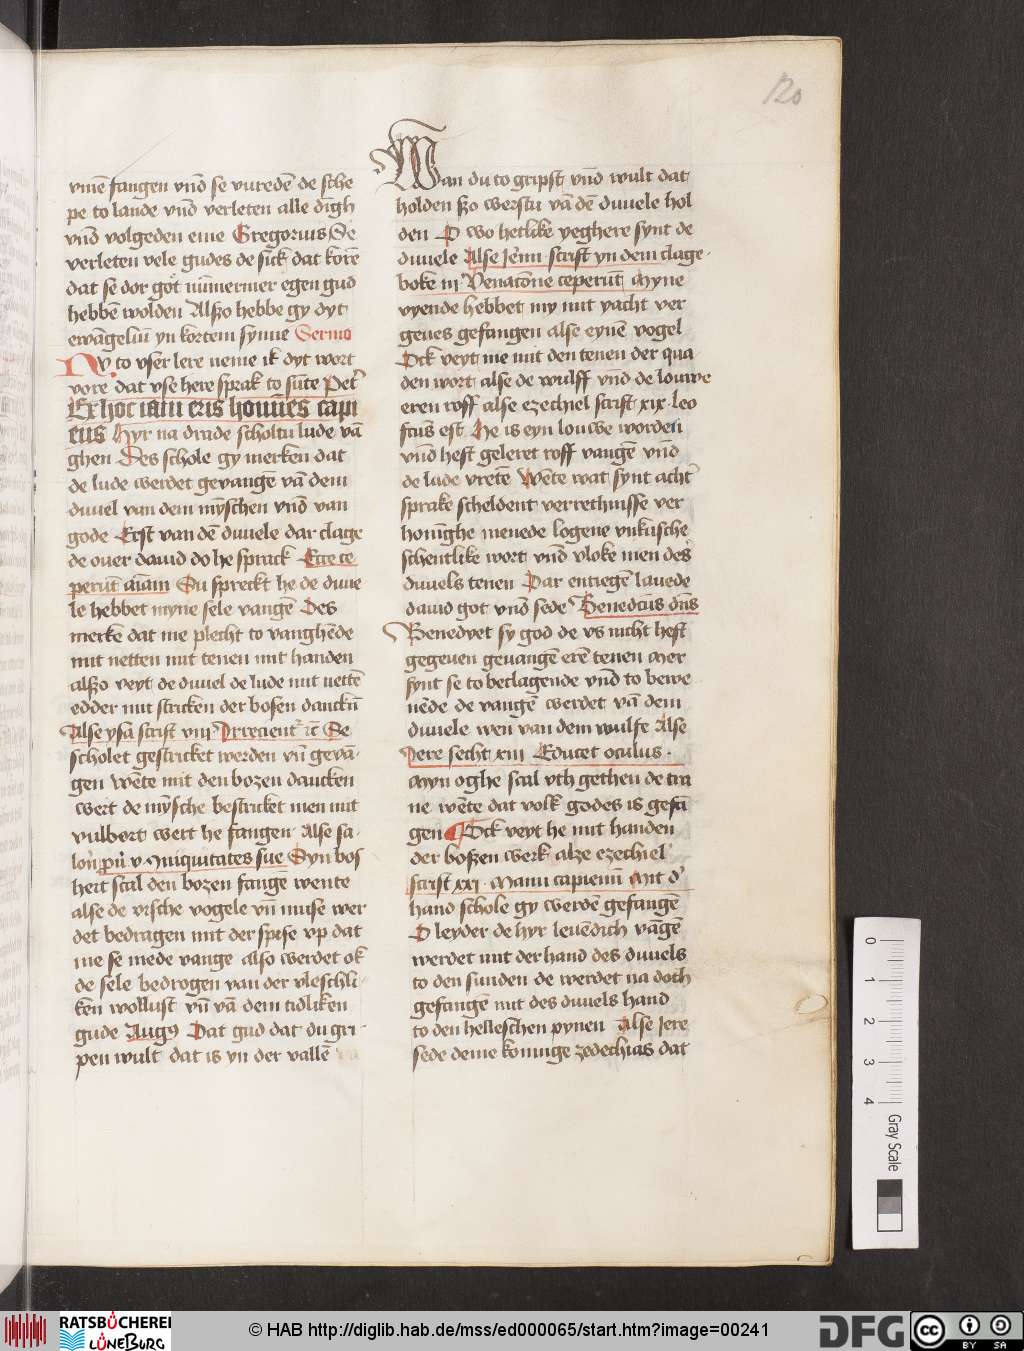 120
vmē fangen vnd se vureden de sche
pe to lande vnd verleten alle dīgh
vnd volgeden eme Gregorius Se
verleten vele gudes de sick dat korē
dat se dor got nūmermer egen gud
hebbē wolden Alßo hebbe gy dyt
ewāgeliū yn kortem synne Sermo
Nv to vser lere neme ik dyt wort
vore dat vse here sprak to sūte Pet'
Ex hoc iam eris homīes capi
ens Hyr na drade scholtu lude vā
ghen Des schole gy merken dat
de lude werdet gevangē vā dem
duuel van dem mȳschen vnd van
gode Erst van dē duuele dar clage
de ouer dauid do he sprack Ecce ce
perūt aīam Su spreckt he de duue
le hebbet myne sele vangē Des
merke dat me plecht to vanghēde
mit netten mit tenen mit handen
alßo veyt de duuel de lude mit nettē
edder mit stricken der bosen danckū
Alse ysa scrift viii Irrecient' rc Se
scholet gestricket werden vn̄ gevā
gen wēte mit den bozen dancken
wert de mȳsche bestricket men mit
vulbort wert he fangen Alse sa
lon pū v Iniquitates sue Syn bos
hert scal den bozen fangē wente
alse de vrsche vogele vn̄ muse wer
det bedragen mit der spise vp dat
me se mede vange also werdet ok
de sele bedrogen van der vleschli
kēn wollust vn̄ vā dem tidliken
gude Aug9 Dat gud dat du gri
pen wult dat is yn der vallē
Wan du to gripst vnd wult dat
holden ßo werstu vā dē duuele hol
den O wo hetlike yeghere synt de
duuele Alse Jerm scrift yn dem clage
boke iii Venatōne ceperūt Myne
vyende hebbet my mit yacht ver
geues gefangen alse eynē vogel
Ock veyt me mit den tenen der qua
den wort alse de wulff vnd de louwe
eren roff alse ezechiel scrift xix leo
fctūs est He is eyn louwe worden
vnd heft geleret roff vangē vnd
de lude vretē Wēte wat synt acht'
sprake scheldent verretnisse ver
honīghe menede logene vnkūsche
schentlike wort vnd vloke men des
duuels tenen Dar entiegē lauede
dauid got vnd sede Benedctūs dn̄s
Benedyet sy god de vs nicht heft
gegeuen gevangē erē tenen Mer
synt se to beclagende vnd to bewe
nēde de vangē werdet vā dem
duuele wen van dem wulfe Alse
Jere secht xiii Educet oculus
Myn oghe scal vth gethen de tra
ne wēte dat volk godes is gefā
gen Ock veyt he mit handen
der boßen werk alze ezechiel
scrift xxi Manu capiemī Mit d'
hand schole gy werdē gefangē
O leyder de hyr leuēdich vāgē
werdet mit der hand des duuels
to den sunden de werdet na doch
gefangē mit des duuels hand
to den helleschen pynen Alse Jere
sede deme konnige zedechias dat
0
1
2
3
4
Gray Scale
RATSBÜCHEREI
LÜNEBURG
© HAB http://diglib.hab.de/mss/ed000065/start.htm?image=00241
DFG
cc
BY SA